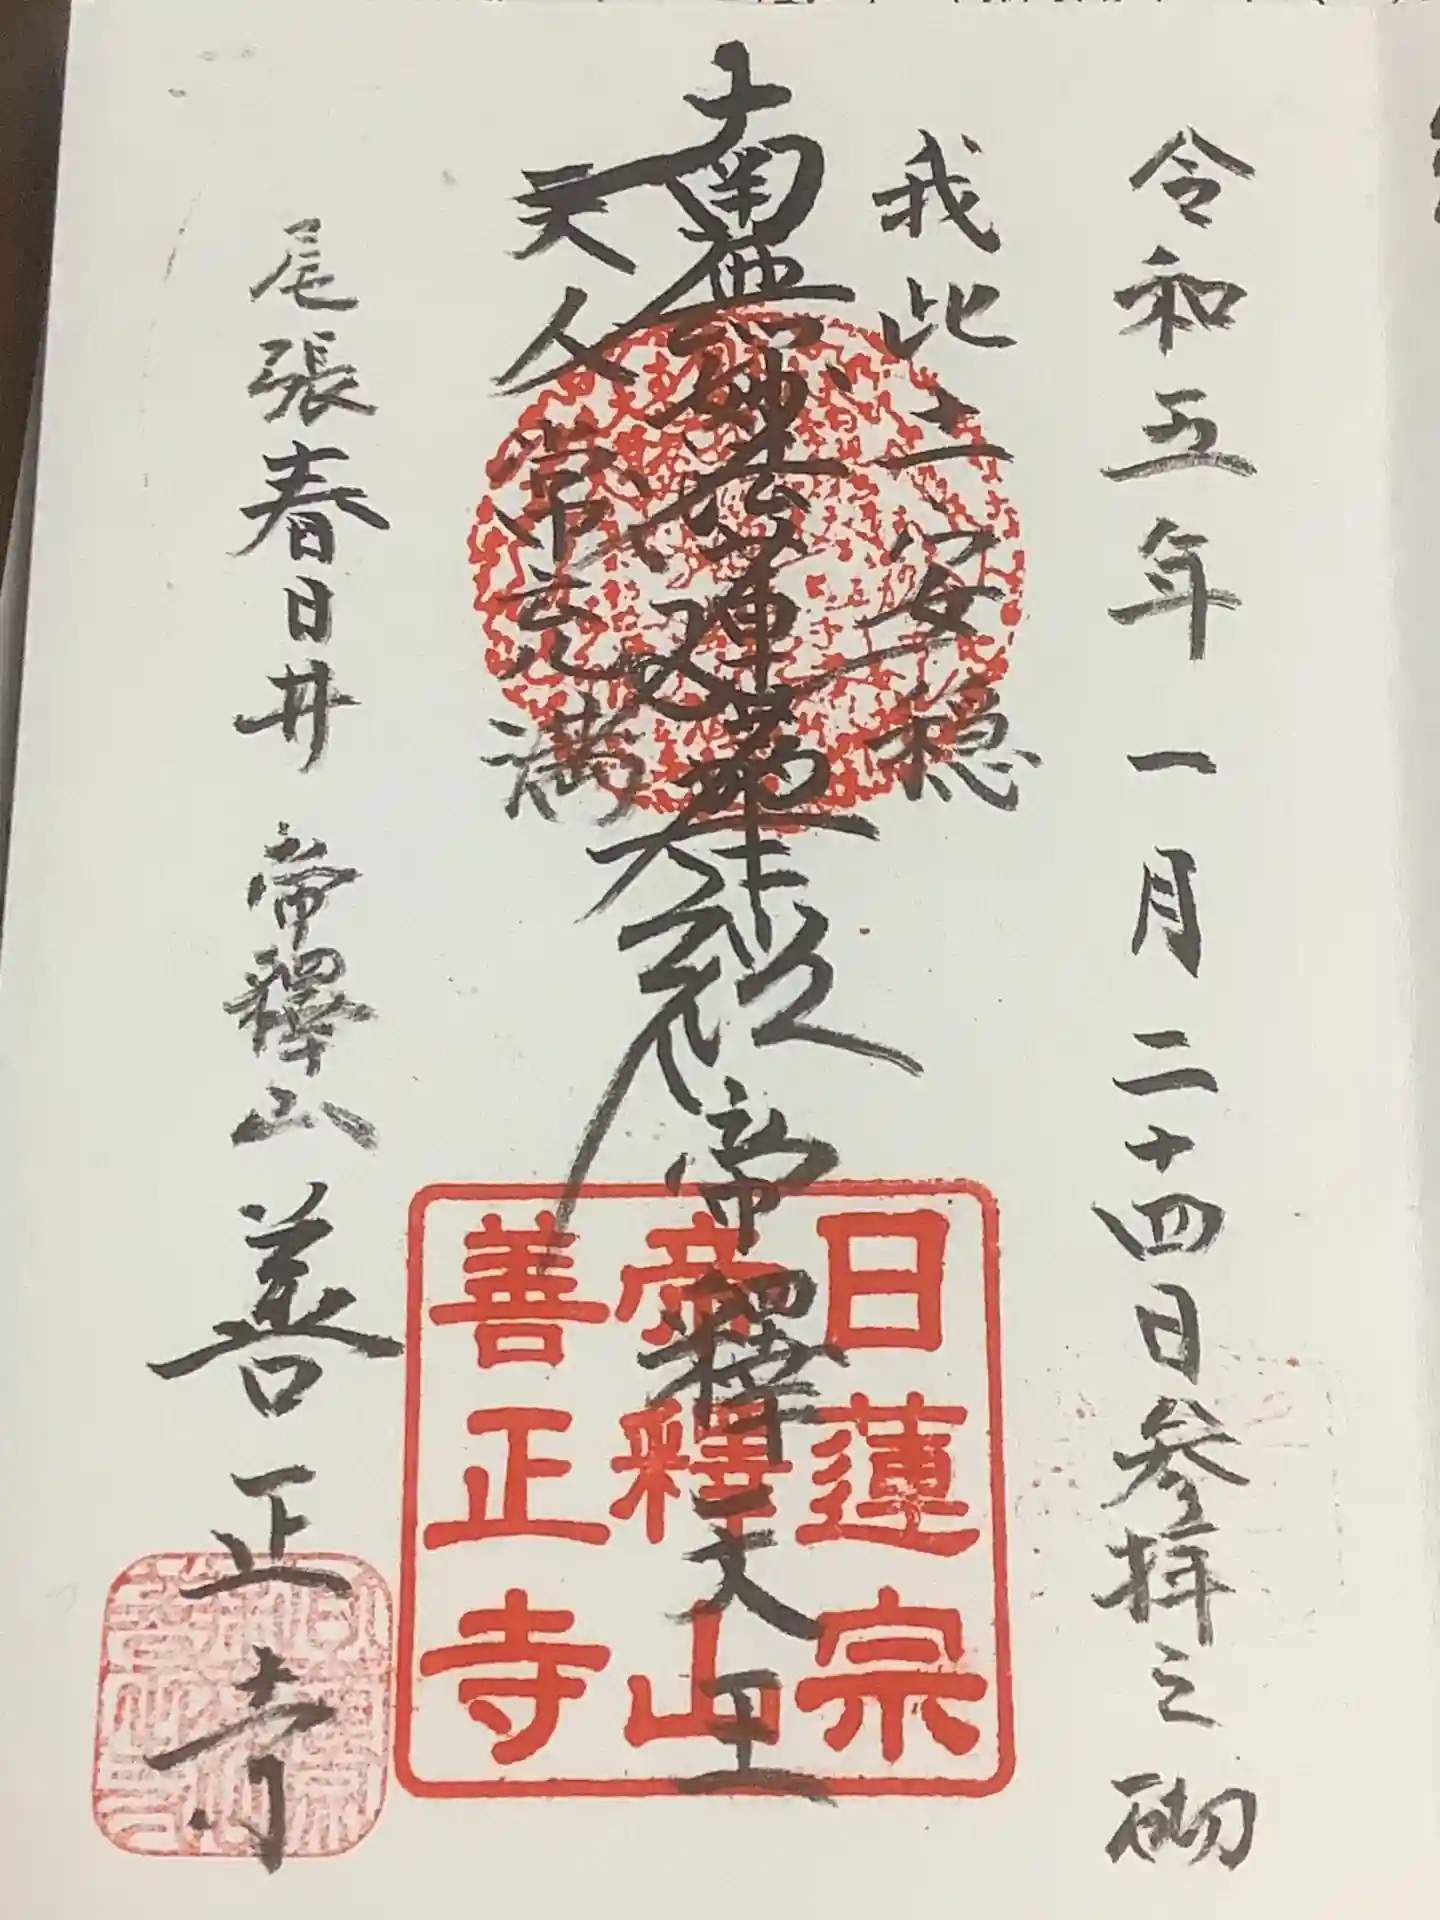 令和五年一月二十四日参拝之砌
我此土安穏
南無妙法蓮華経
帝釋天王
天人常充満
尾張春日井 帝釋山 善正寺
日蓮宗
帝釋山
善正寺